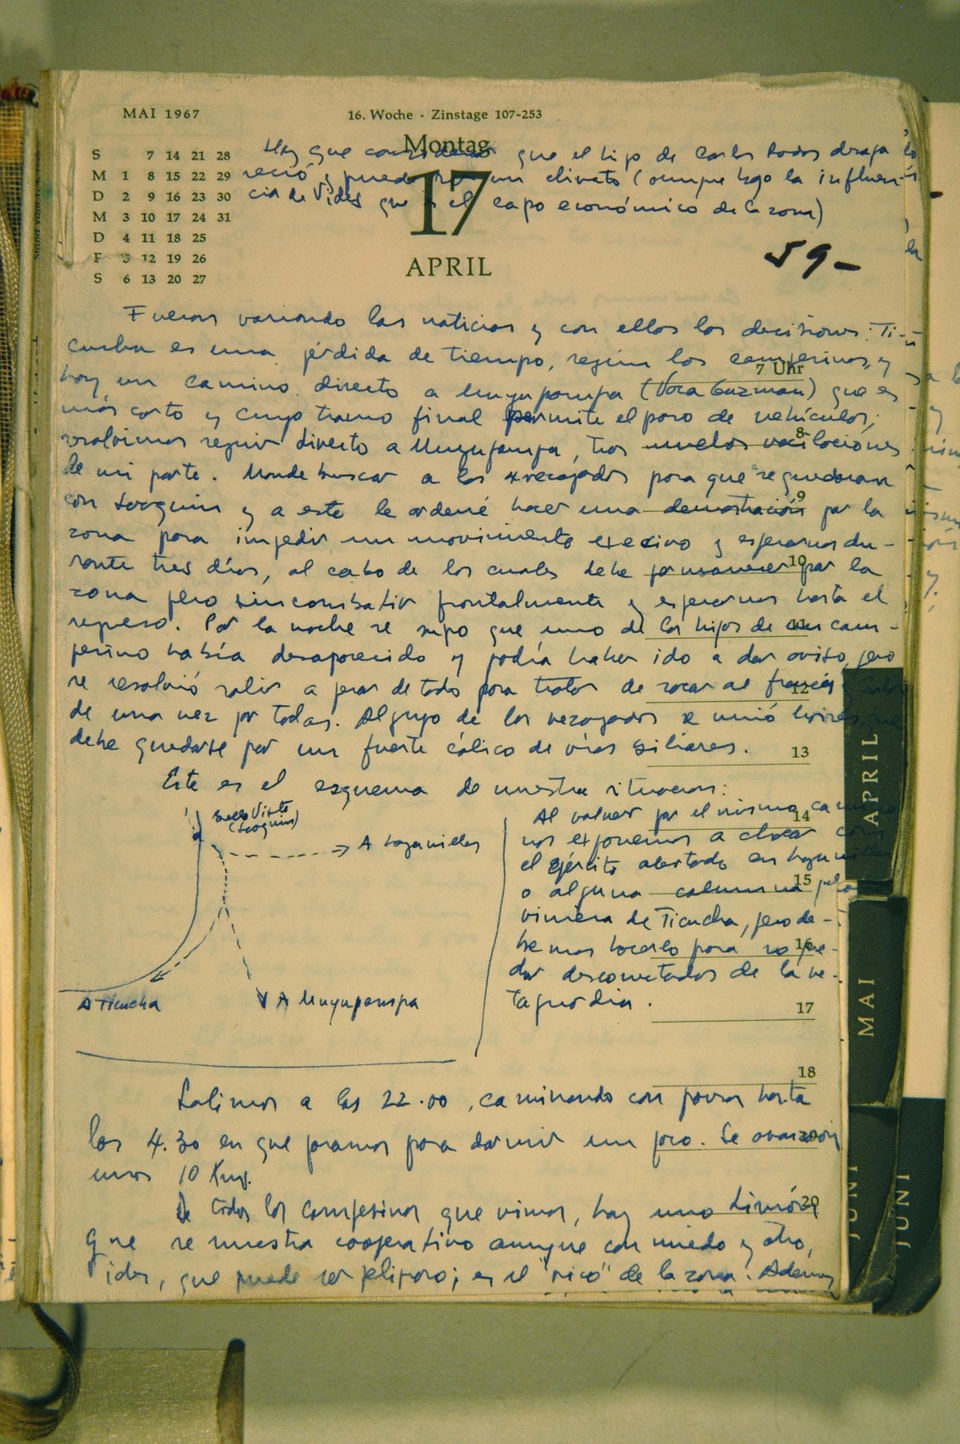 MAI 1967
16. Woche · Zinstage 107-253
Montag
S 7 14 21 28
M 1 8 15 22 29
D 2 9 16 23 30
M 3 10 17 24 31
D 4 11 18 25
F 5 12 19 26
S 6 13 20 27
Hay que considerar que el hijo de Carlos Rodas desapa
reció y puede ser un chivato (aunque bajo la influen-
cia de Vides que es el capo económico de la zona)
17
APRIL
59-
Fueron variando las noticias y con ellas las decisiones: Ti-
cucha es una pérdida de tiempo, según los campesinos, y
hay un camino directo a Muyupampa (Vaca Guzman) que es
más corto y cuyo tramo final permite el paso de vehículos;
resolvimos seguir directo a Muyupampa, tras muchas vacilaciones
de mi parte. Mandé buscar a los rezagados para que se quedaran
con Joaquin y a este le ordené hacer una demostración por la
zona para impedir un movimiento excesivo y esperarnos du-
rante tres días, al cabo de los cuales debe permanecer por la
zona pero sin combatir frontalmente y esperarnos hasta el
regreso. Por la noche se supo que uno de los hijos de un cam-
pesino había desaparecido y podía haber ido a dar aviso, pero
se resolvió salir a pesar de todo para tratar de sacar al francés
de una vez por todas. Al grupo de los rezagados se unió Moisés, que
debe quedarse por un fuerte cólico de vías biliares.
Este es el esquema de nuestra situación:
Bella Vista
(Joaquin)
A Lagunillas
A Ticucha
A Muyupampa
Al volver por el mismo camino
nos exponemos a chocar con
el ejército alertado en Lagunillas
o alguna columna que
viniera de Ticucha, pero de-
bemos hacerlo para no que-
dar desconectados de la re-
taguardia.
7 Uhr
8
9
10
11
12
13
14
15
16
17
18
20
Salimos a las 22.00, caminando con pausas hasta
las 4.30 en que paramos para dormir un poco. Se avanzaron
unos 10 Km.
De todos los campesinos que vimos, hay uno Simón
que se muestra cooperativo aunque con miedo y otro,
ides, que puede ser peligroso; es el "rico" de la zona. Además
APRIL
MAI
JUNI
JUNI